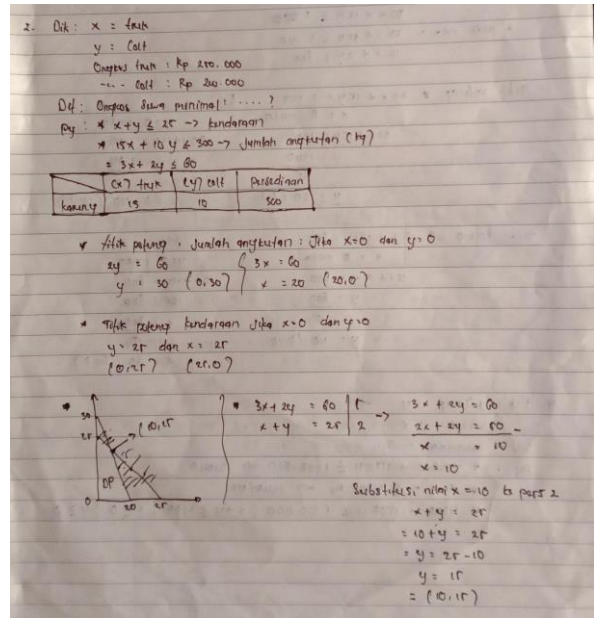 2. Dik : x = truk
y : Colt
Ongkos truk : Rp 250.000
-"- Colt : Rp 200.000
Dit : Ongkos Sewa minimal : .... ?
Py : * x + y ≤ 25 -> kendaraan
* 15x + 10 y ≤ 300 -> Jumlah angkutan (kg)
= 3x + 2y ≤ 60
(x) truk (y) colt Persediaan
karung 15 10 300
titik potong . Jumlah angkutan : Jika x=0 dan y=0
2y = 60 3x = 60
y = 30 (0,30) x = 20 (20,0)
* Titik potong kendaraan Jika x=0 dan y=0
y = 25 dan x = 25
(0,25) (25,0)
30
25
(10,15
DP
0 20 25
* 3x + 2y = 60 | 1
x + y = 25 | 2
-> 3x + 2y = 60
2x + 2y = 50 -
x = 10
x = 10
Substitusi nilai x = 10 ke pers 2
x + y = 25
= 10 + y = 25
= y = 25 - 10
y = 15
= (10,15)